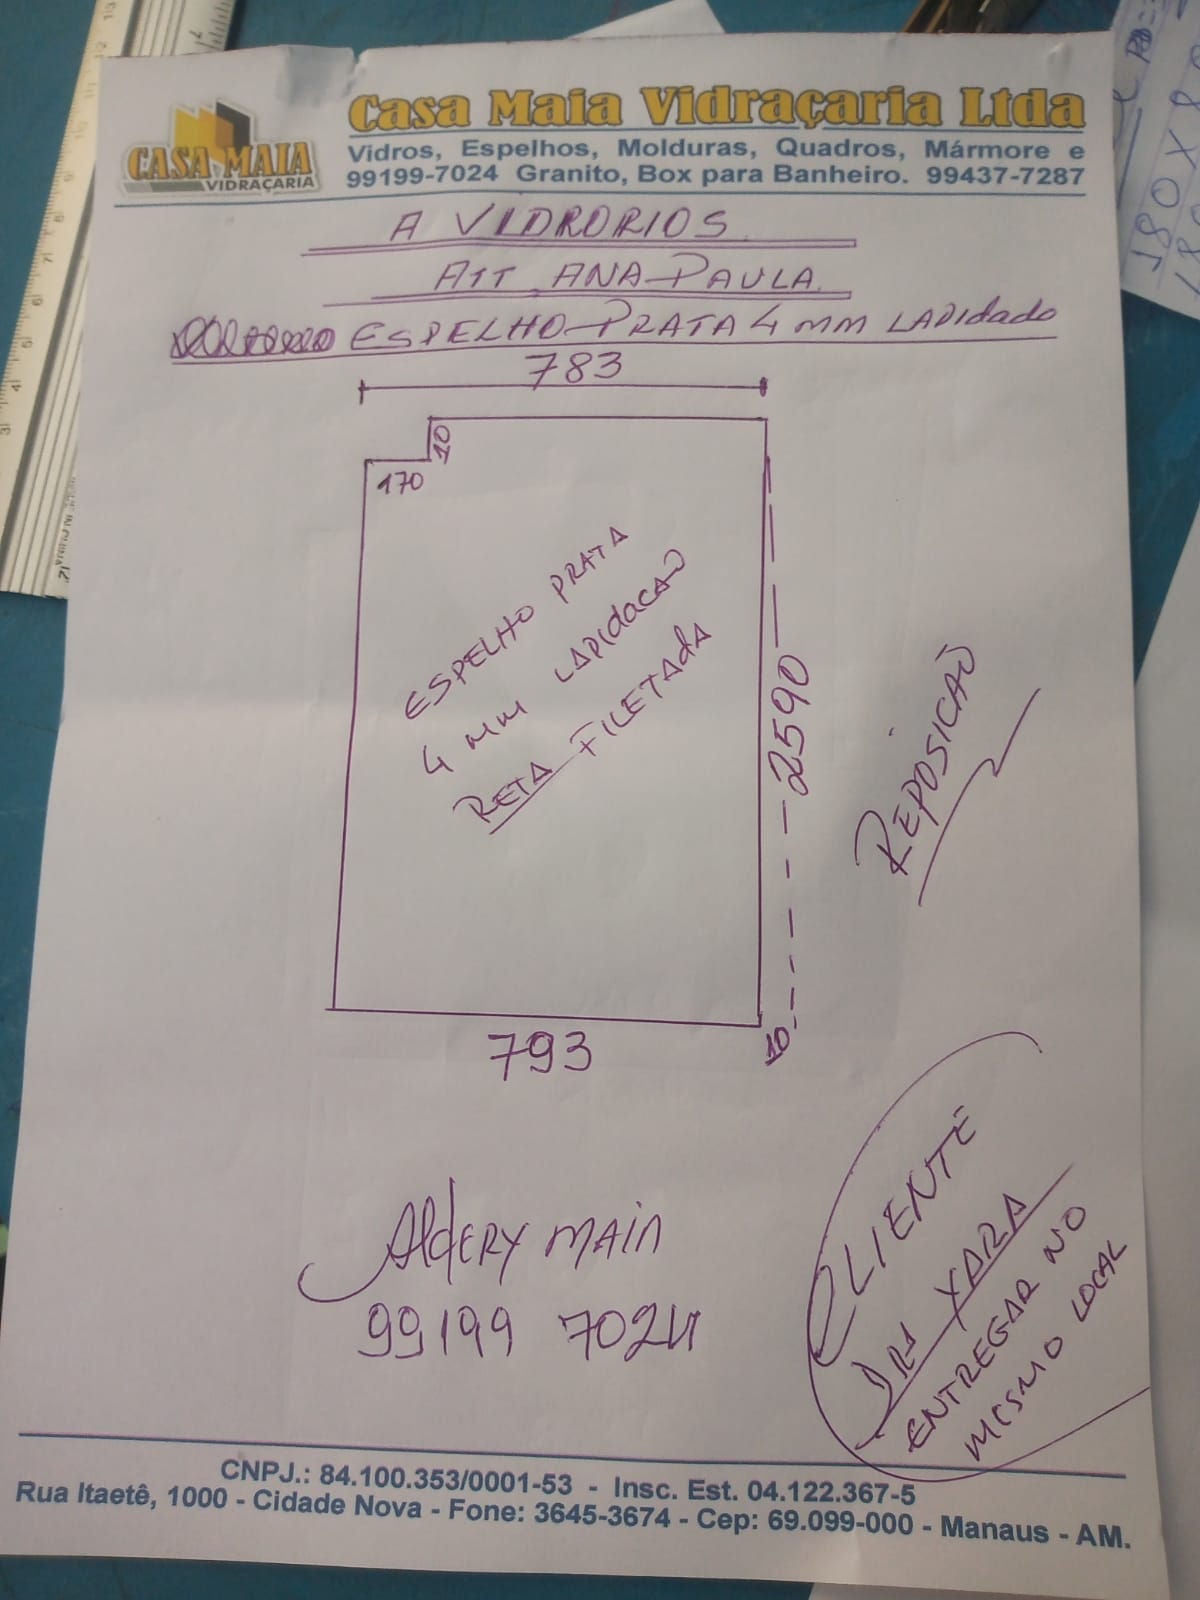 CASA MAIA
VIDRAÇARIA
Casa Maia Vidraçaria Ltda
Vidros, Espelhos, Molduras, Quadros, Mármore e
99199-7024 Granito, Box para Banheiro. 99437-7287
A VIDRORIOS
ATT ANA PAULA
ESPELHO PRATA 4 MM LAPIDADO
783
10
170
ESPELHO PRATA
4 MM LAPIDACAO
RETA FILETADA
2590
REPOSICAO
793
10
CLIENTE
DRA XARA
ENTREGAR NO
MESMO LOCAL
Aldery MAIA
99199 7024
CNPJ.: 84.100.353/0001-53 - Insc. Est. 04.122.367-5
Rua Itaetê, 1000 - Cidade Nova - Fone: 3645-3674 - Cep: 69.099-000 - Manaus - AM.